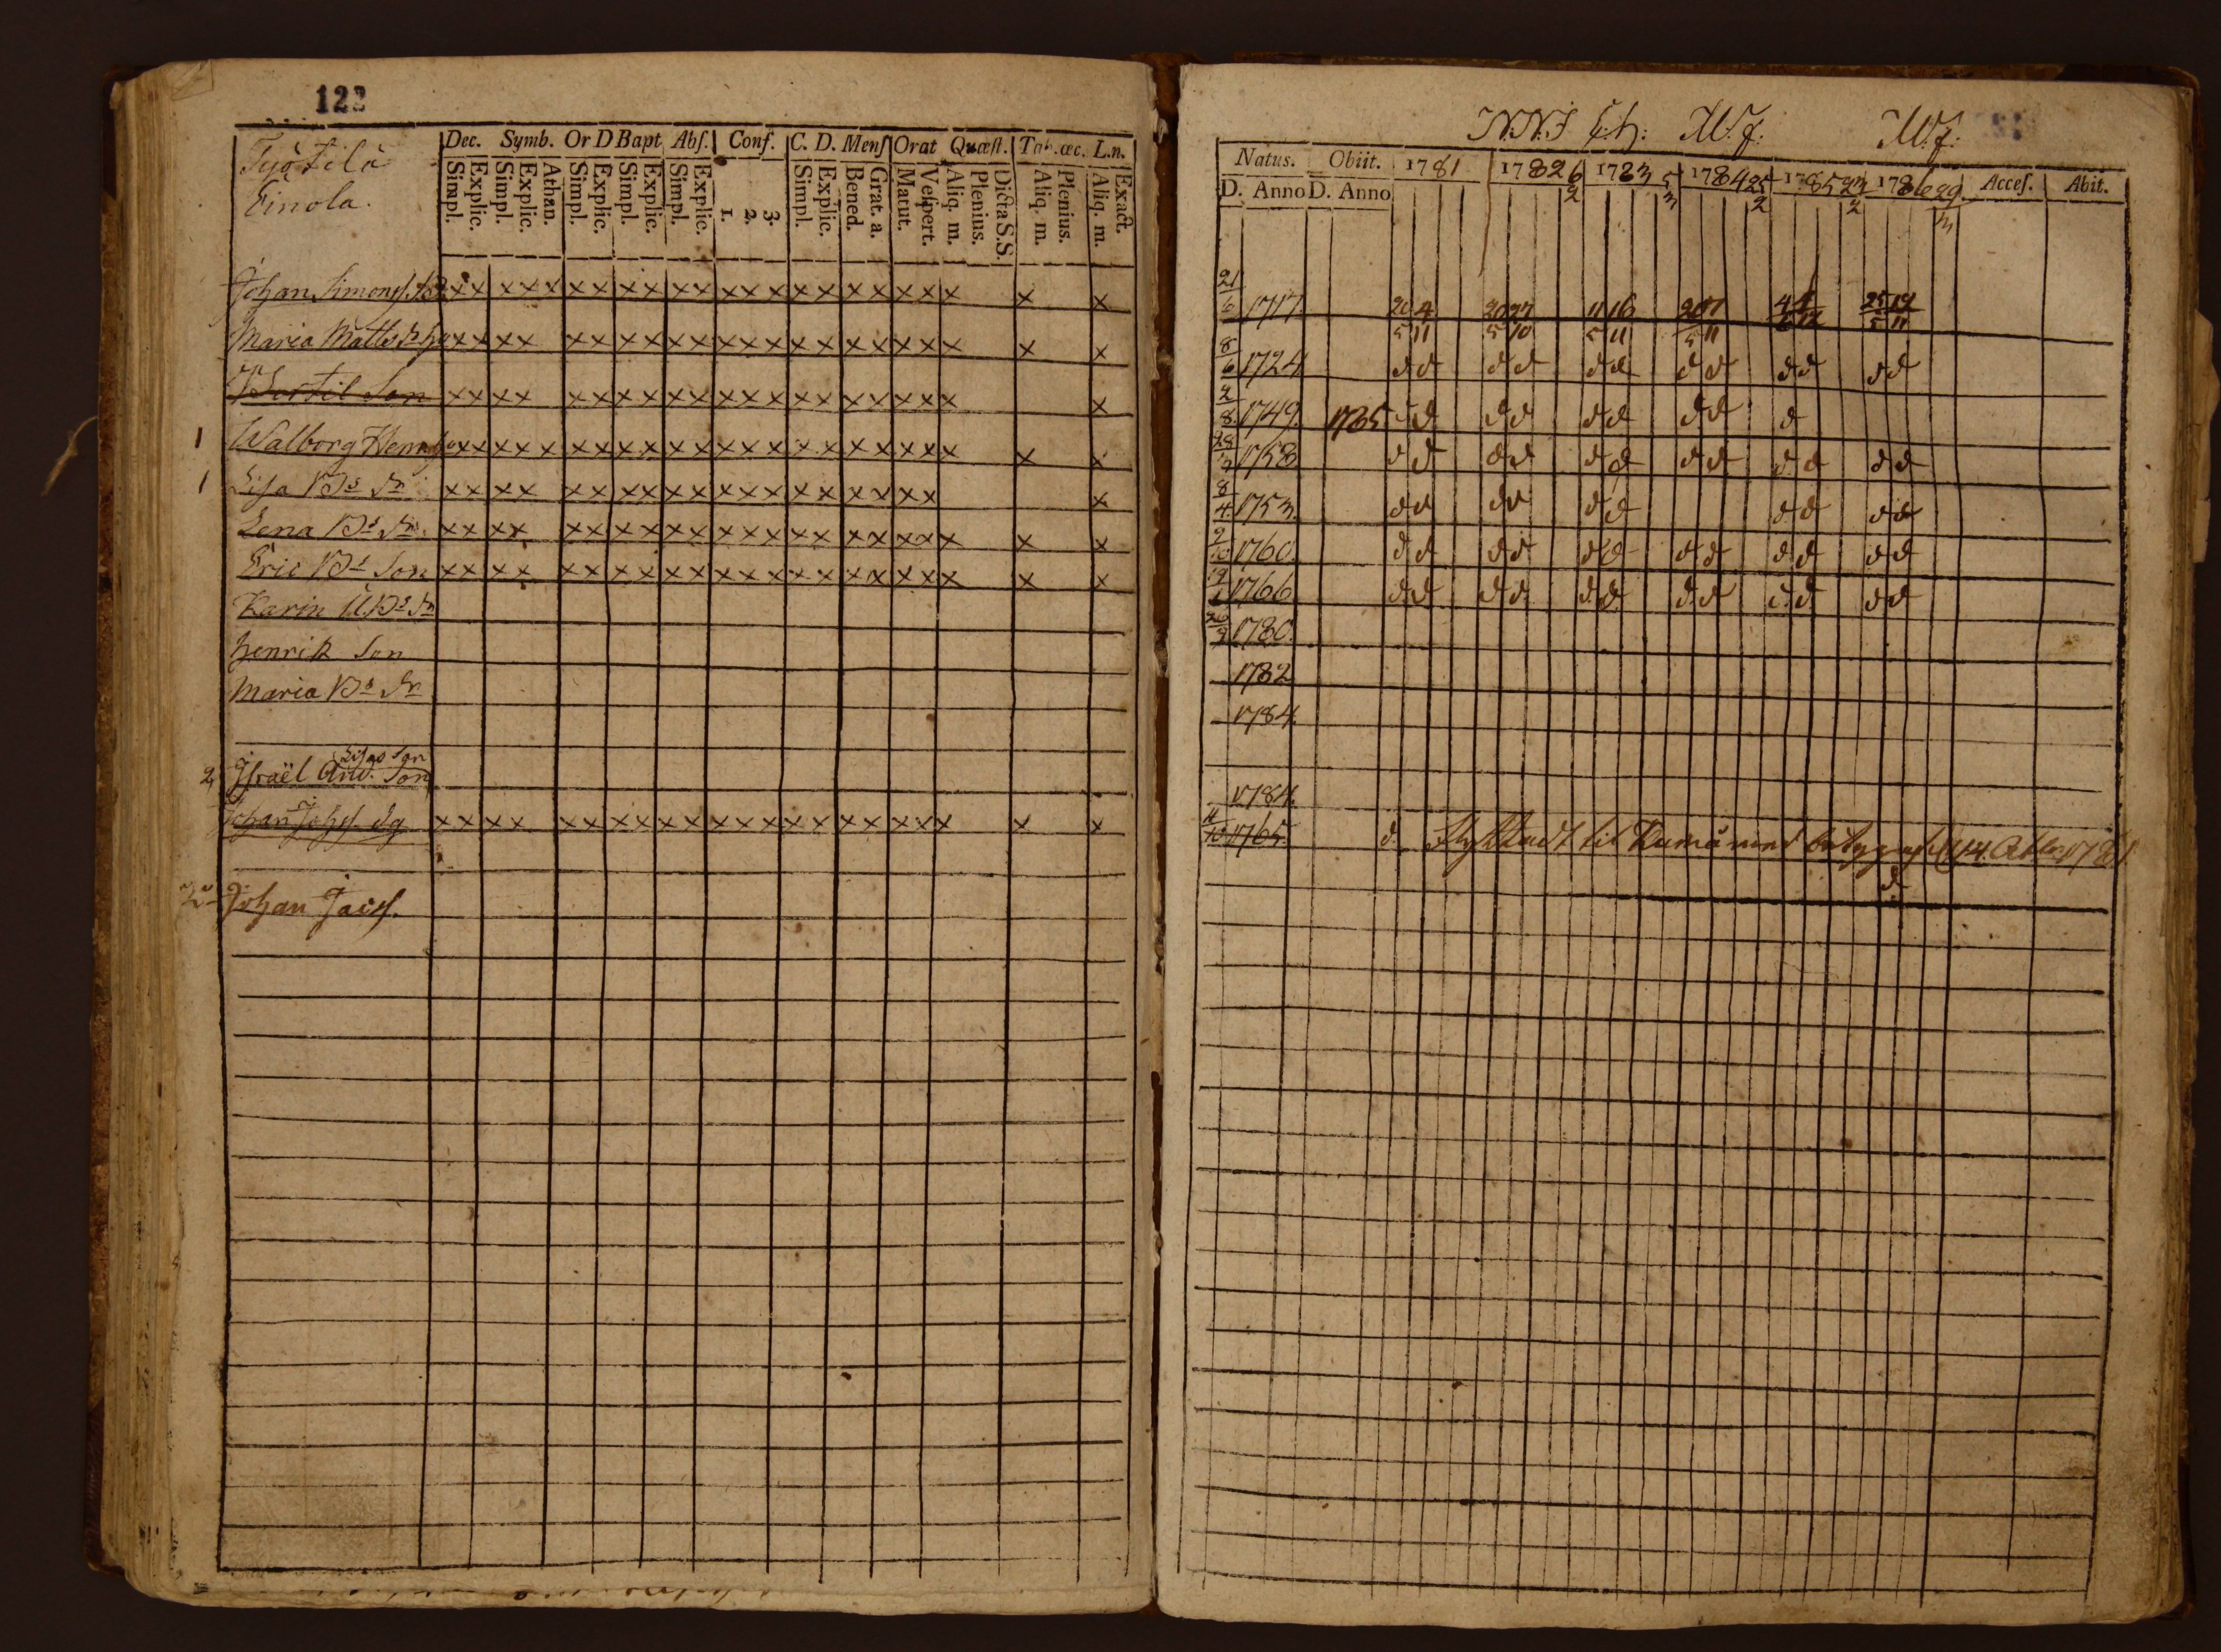 122
Dec. Symb. Or D Bapt Abſ. Conf. C. D. Menſ Orat Quæſt. Tab. œc. L.n.
Simpl. Explic. Simpl. Explic. Athan. Simpl. Explic. Simpl. Explic. Simpl. Explic. 1. 2. 3. Simpl. Explic. Bened. Grat. a. Matut. Veſpert. Aliq. m. Plenius. Dicta S.S. Aliq. m. Plenius. Aliq. m. Exact.
Tyrötilä
Einola.
Johan Simonſ. x x x x x x x x x x x x x x x x x x x x x x x
Maria Matts dr x x x x x x x x x x x x x x x x x x x x x x
Bertil Son x x x x x x x x x x x x x x x x x x x x x
1 Walborg x x x x x x x x x x x x x x x x x x x x x x x
1 Lisa Bs dr x x x x x x x x x x x x x x x x x x x x
Lena Bs dr x x x x x x x x x x x x x x x x x x x x x x
Eric Bs Son x x x x x x x x x x x x x x x x x x x x x x
Karin
Henrik Son
Maria Bs dr
Lisas Son
2 Israël Son
Johan Johsſ. dg x x x x x x x x x x x x x x x x x x x x x
Johan Jacsſ.
M.f. M.f.
Natus. Obiit. 1781 1782 6/2 1783 5/3 1784 25/2 1785 23/2 1786 29/3 Acceſ. Abit.
D. Anno D. Anno
21/6 1717. 20/5 4/11 20/5 27/10 11/5 16/11 20/5 1/11
8/6 1724 d d d d d d d d d d d d
2/8 1749. 1785 d d d d d d d d d
1758 d d d d d d d d d d d d
8/4 1753. d d d d d d d d d d
9/10 1760. d d d d d d d d d d d d
1766 d d d d d d d d d d d d
1780.
1782
1784.
1784.
11/10 1765. d. til
d.